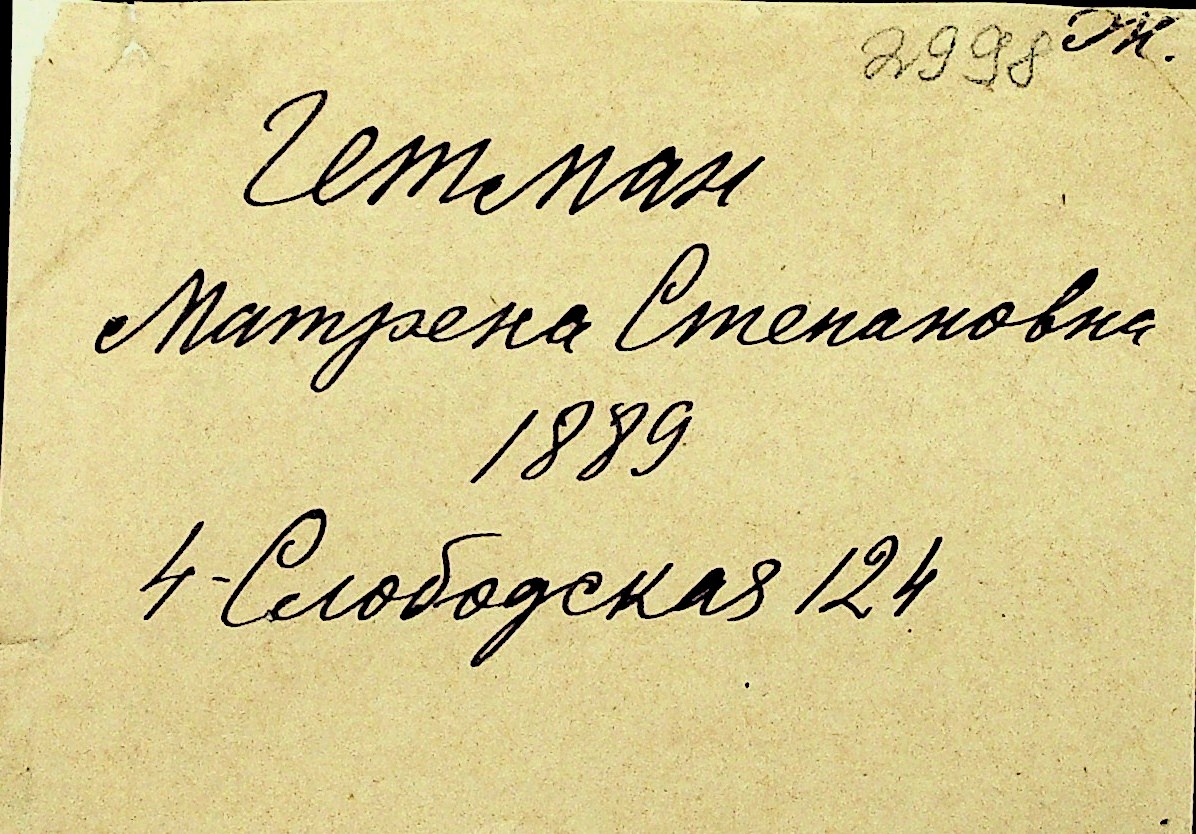 2998 Ж.
Гетман
Матрена Степановна
1889
4-Слободская 124